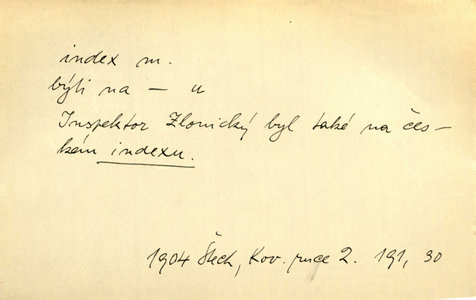 index m.
býti na — u
Inspektor Zlonický byl také na čes-
kém indexu.
1904 Štech, Kov. ruce 2. 191, 30